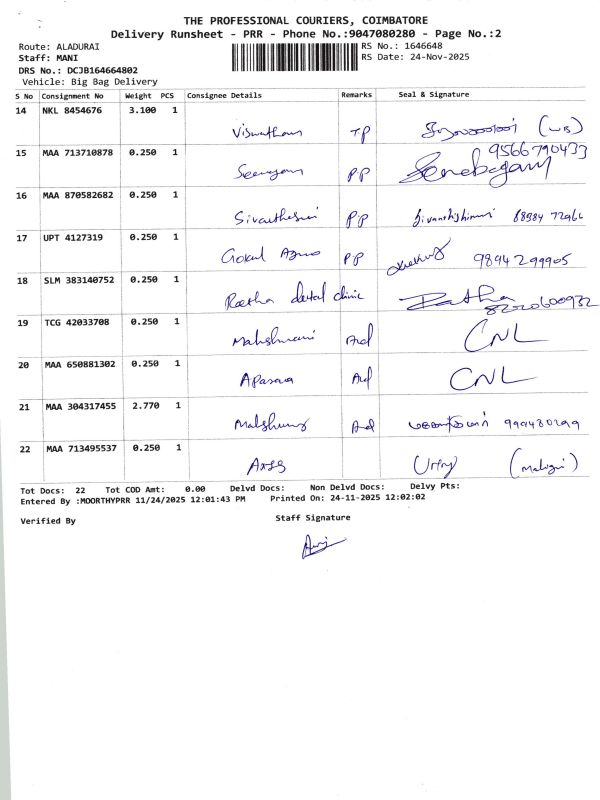 THE PROFESSIONAL COURIERS, COIMBATORE
Delivery Runsheet - PRR - Phone No.:9047080280 - Page No.:2
Route: ALADURAI
RS No.: 1646648
Staff: MANI
RS Date: 24-Nov-2025
DRS No.: DCJB164664802
Vehicle: Big Bag Delivery
S No Consignment No Weight PCS Consignee Details Remarks Seal & Signature
14 NKL 8454676 3.100 1 Viswatham TP
15 MAA 713710878 0.250 1 PP 9566790433
16 MAA 870582682 0.250 1 PP
17 UPT 4127319 0.250 1 Gokul PP 9894299905
18 SLM 383140752 0.250 1 Raetha dental clinic Ratha 8220600932
19 TCG 42033708 0.250 1 CNL
20 MAA 650881302 0.250 1 CNL
21 MAA 304317455 2.770 1
22 MAA 713495537 0.250 1
Tot Docs: 22 Tot COD Amt: 0.00 Delvd Docs: Non Delvd Docs: Delvy Pts:
Entered By :MOORTHYPRR 11/24/2025 12:01:43 PM Printed On: 24-11-2025 12:02:02
Verified By
Staff Signature